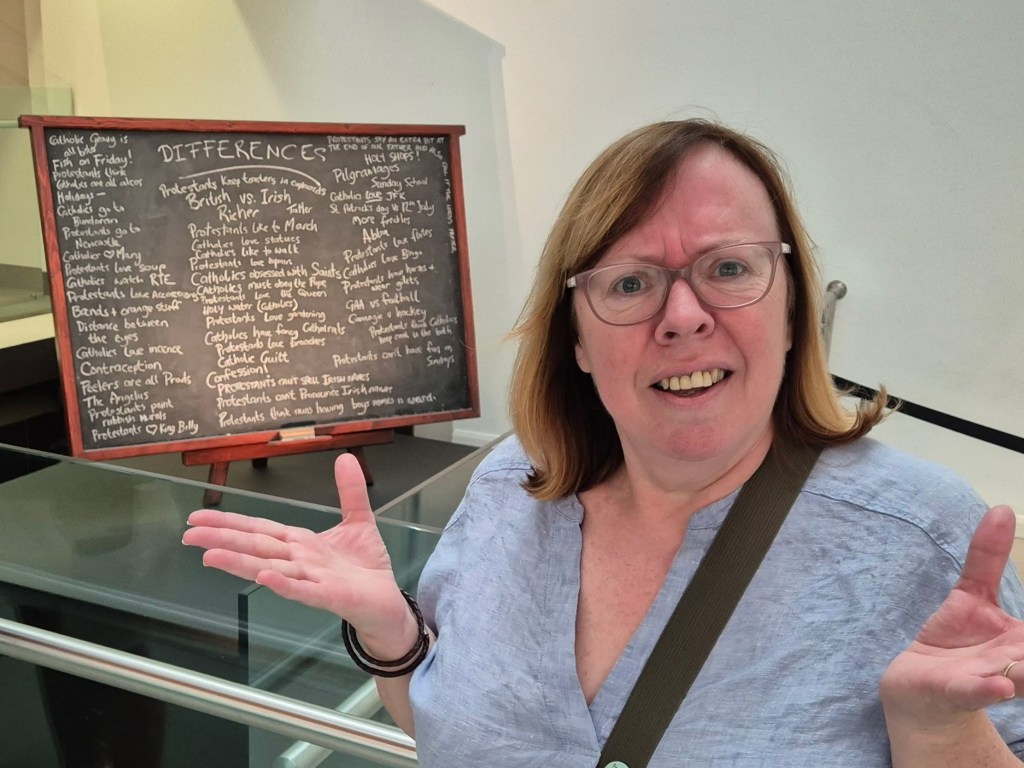 DIFFERENCES
Catholic Gravy is
all bits
Fish on Friday!
Protestants think
Catholics are all alcos
Holidays -
Catholics go to
Bundoran
Protestants go to
Newcastle
Catholics ♡ Mary
Protestants love soup
Catholics watch RTE
Protestants love Accordions
Bands + orange stuff
Distance between
the eyes
Catholics love incence
Contraception
Peelers are all Prods
The Angelus
Protestants paint
rubbish murals
Protestants ♡ King Billy
Protestants keep toasters in cupboards
British vs. Irish
Richer
Taller
Protestants like to March
Catholics love statues
Catholics like to walk
Protestants love
Catholics obsessed with Saints
Catholics must obey the Pope
Protestants love the Queen
Holy water (Catholics)
Protestants love gardening
Catholics have fancy Cathedrals
Protestants love
Catholic Guilt
Confession!
PROTESTANTS CAN'T SPELL IRISH NAMES
Protestants can't Pronounce Irish
Protestants think nuns having boys names is weird.
PROTESTANTS SAY AN EXTRA BIT AT
THE END OF OUR FATHER AND ALSO
HOLY SHOPS!
Pilgramages
Sunday School
Catholics love JFK
St. Patrick's day vs 12th July
more freckles
Abba
Protestants love flutes
Catholics love Bingo
Protestants have horses +
wear gilets
GAA vs football
Camogie v hockey
Protestants think Catholics
keep coal in the bath
Protestants can't have fun on
Sundays